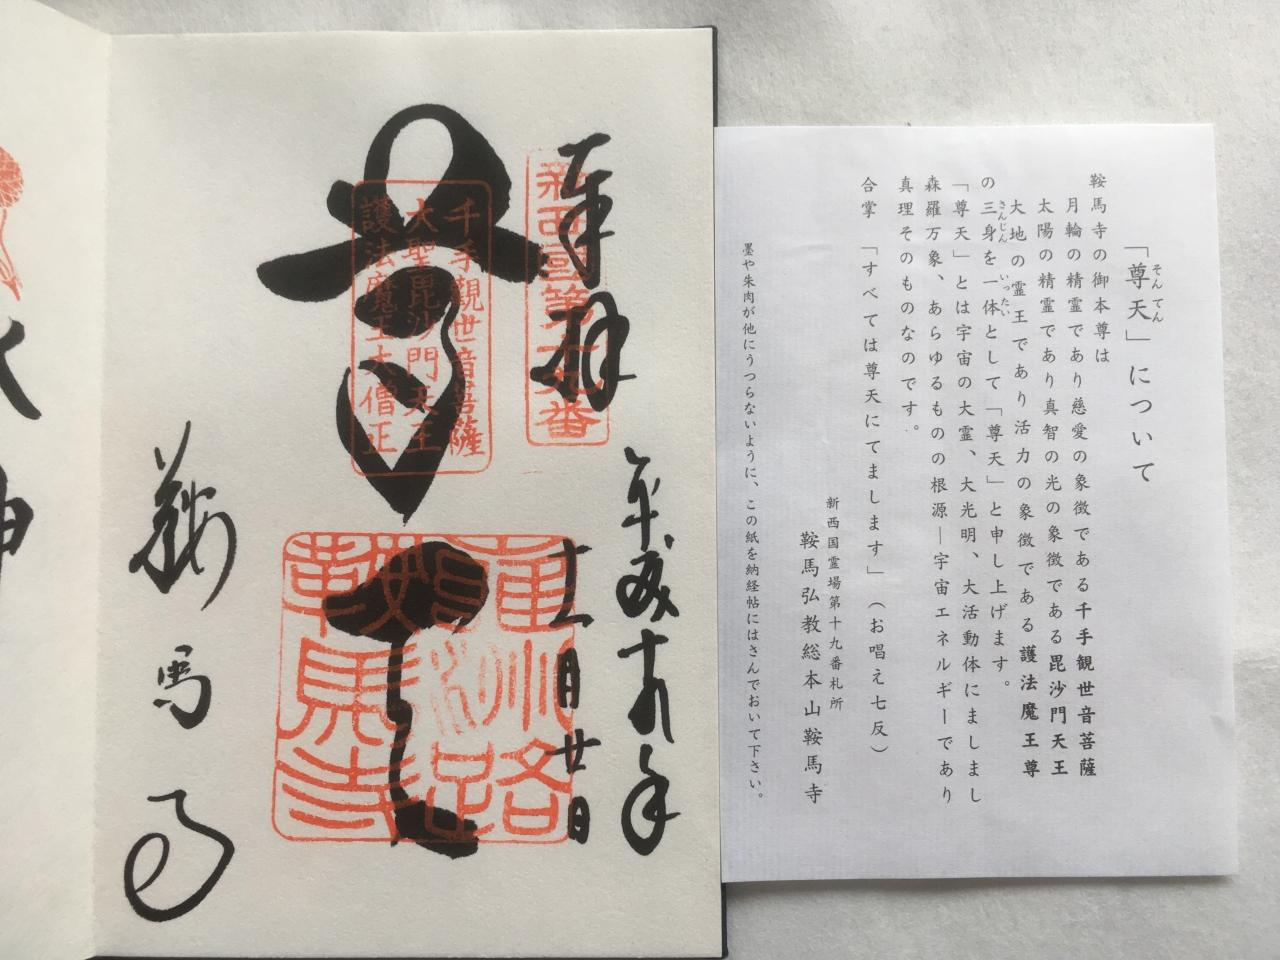 奉拝
新西國第十九番
平成廿九年
十一月廿日
千手觀世音菩薩
大聖毘沙門天王
護法魔王大僧正
鞍馬寺
鞍馬寺
「尊天」について
鞍馬寺の御本尊は
月輪の精霊であり慈愛の象徴である千手観世音菩薩
太陽の精霊であり真智の光の象徴である毘沙門天王
大地の霊王であり活力の象徴である護法魔王尊
の三身を一体として「尊天」と申し上げます。
「尊天」とは宇宙の大霊、大光明、大活動体にましまし
森羅万象、あらゆるものの根源―宇宙エネルギーであり
真理そのものなのです。
合掌 「すべては尊天にてまします」(お唱え七反)
新西国霊場第十九番札所
鞍馬弘教総本山鞍馬寺
墨や朱肉が他にうつらないように、この紙を納経帖にはさんでおいて下さい。